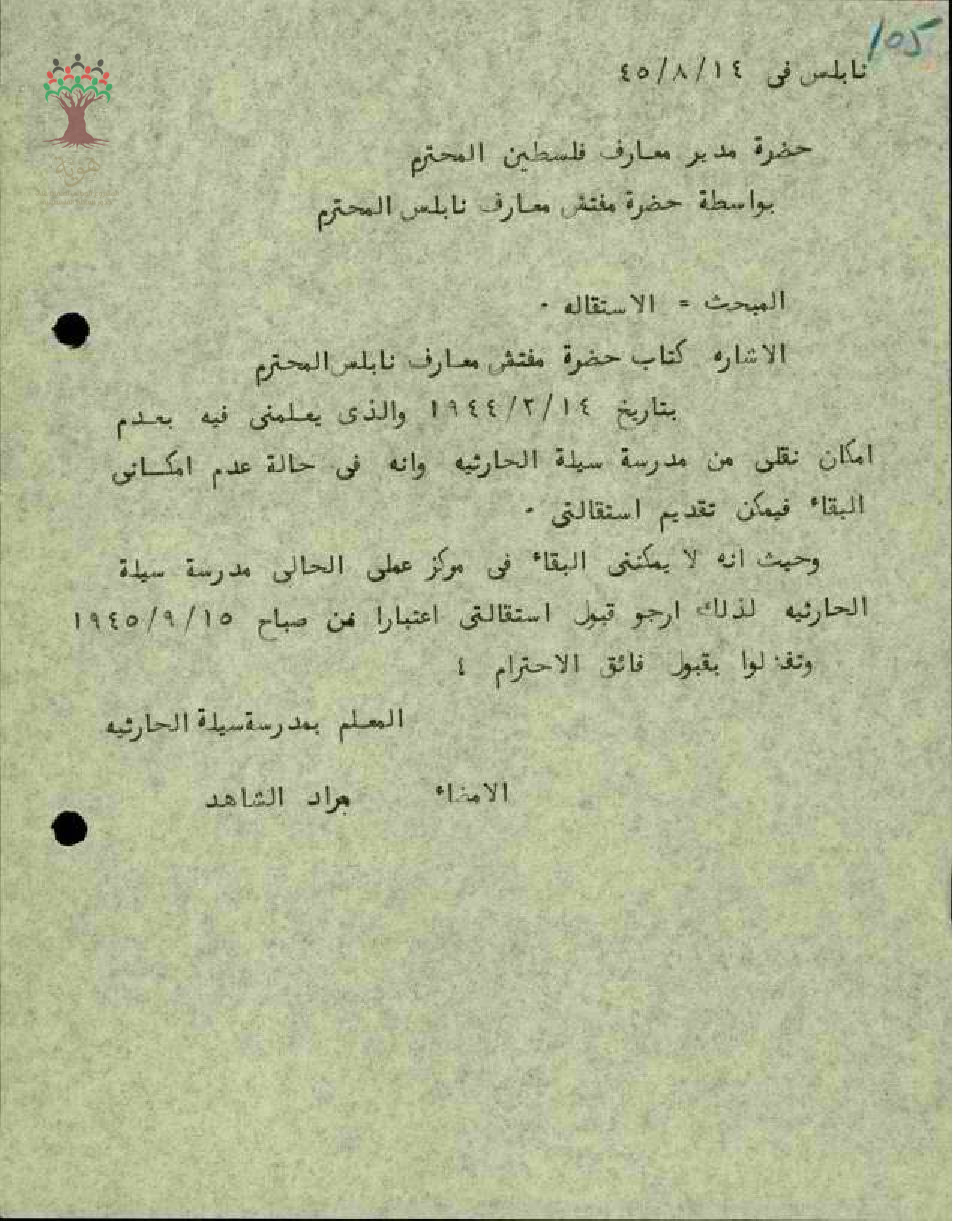 105
نابلس فى ١٤/٨/٤٥
هوية
حضرة مدير معارف فلسطين المحترم
بواسطة حضرة مفتش معارف نابلس المحترم
المبحث = الاستقاله ٠
الاشاره كتاب حضرة مفتش معارف نابلس المحترم
بتاريخ ١٩٤٤/٢/١٤ والذى يعلمنى فيه بعدم
امكان نقلى من مدرسة سيلة الحارثيه وانه فى حالة عدم امكانى
البقاء فيمكن تقديم استقالتى ٠
وحيث انه لا يمكننى البقاء فى مركز عملى الحالى مدرسة سيلة
الحارثيه لذلك ارجو قبول استقالتى اعتبارا من صباح ١٩٤٥/٩/١٥
وتفضلوا بقبول فائق الاحترام ٤
المعلم بمدرسة سيلة الحارثيه
الامضاء الشاهد